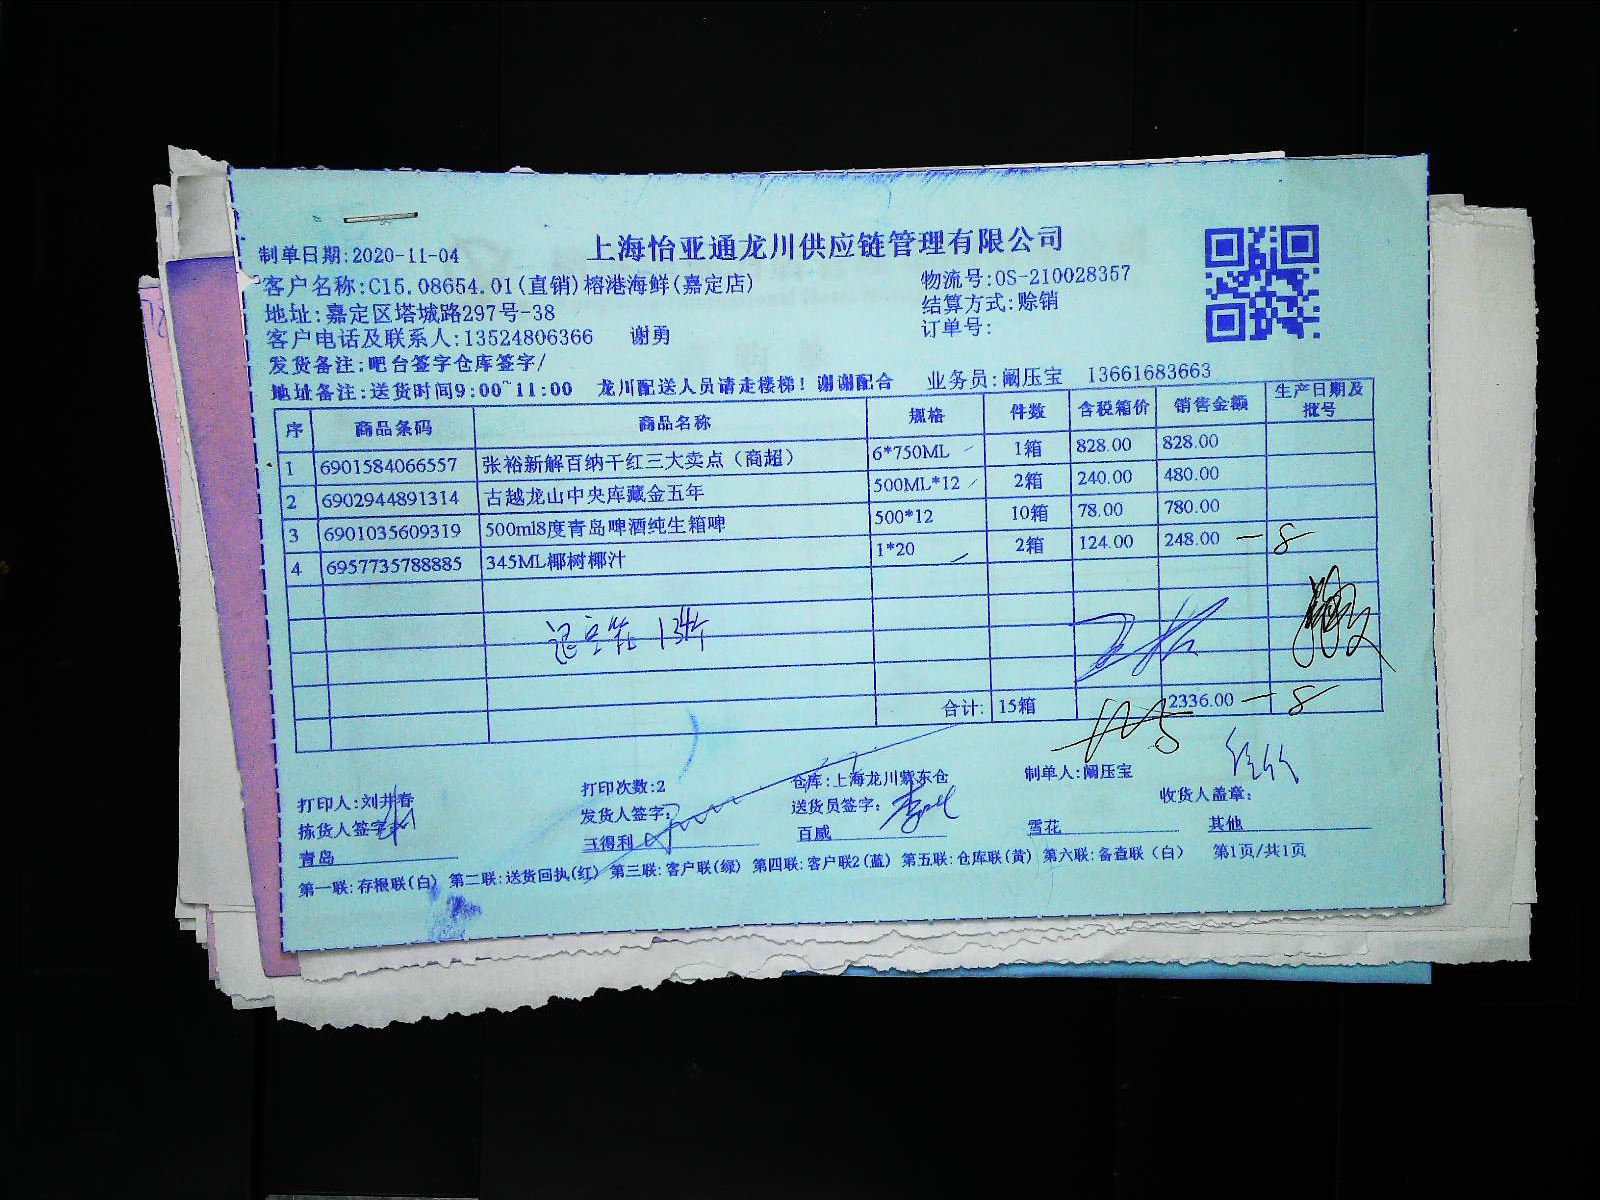 上海怡亚通龙川供应链管理有限公司
制单日期:2020-11-04
客户名称:C15.08654.01(直销)榕港海鲜(嘉定店) 物流号:OS-210028357
地址:嘉定区塔城路297号-38 结算方式:赊销
客户电话及联系人:13524806366 谢勇 订单号:
发货备注:吧台签字仓库签字/
地址备注:送货时间9:00~11:00 龙川配送人员请走楼梯!谢谢配合 业务员:阚压宝 13661683663
序 商品条码 商品名称 规格 件数 含税箱价 销售金额 生产日期及批号
1 6901584066557 张裕新解百纳干红三大卖点(商超) 6*750ML 1箱 828.00 828.00
2 6902944891314 古越龙山中央库藏金五年 500ML*12 2箱 240.00 480.00
3 6901035609319 500ml8度青岛啤酒纯生箱啤 500*12 10箱 78.00 780.00
4 6957735788885 345ML椰树椰汁 1*20 2箱 124.00 248.00 -8
合计: 15箱 2336.00 -8
打印人:刘井春 打印次数:2 仓库:上海龙川紫东仓 制单人:阚压宝
拣货人签字: 发货人签字: 送货员签字: 收货人盖章:
青岛 三得利 百威 雪花 其他
第一联:存根联(白) 第二联:送货回执(红) 第三联:客户联(绿) 第四联:客户联2(蓝) 第五联:仓库联(黄) 第六联:备查联(白) 第1页/共1页